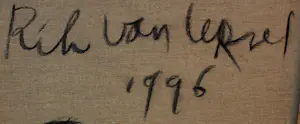 Rik van Iersel
1996